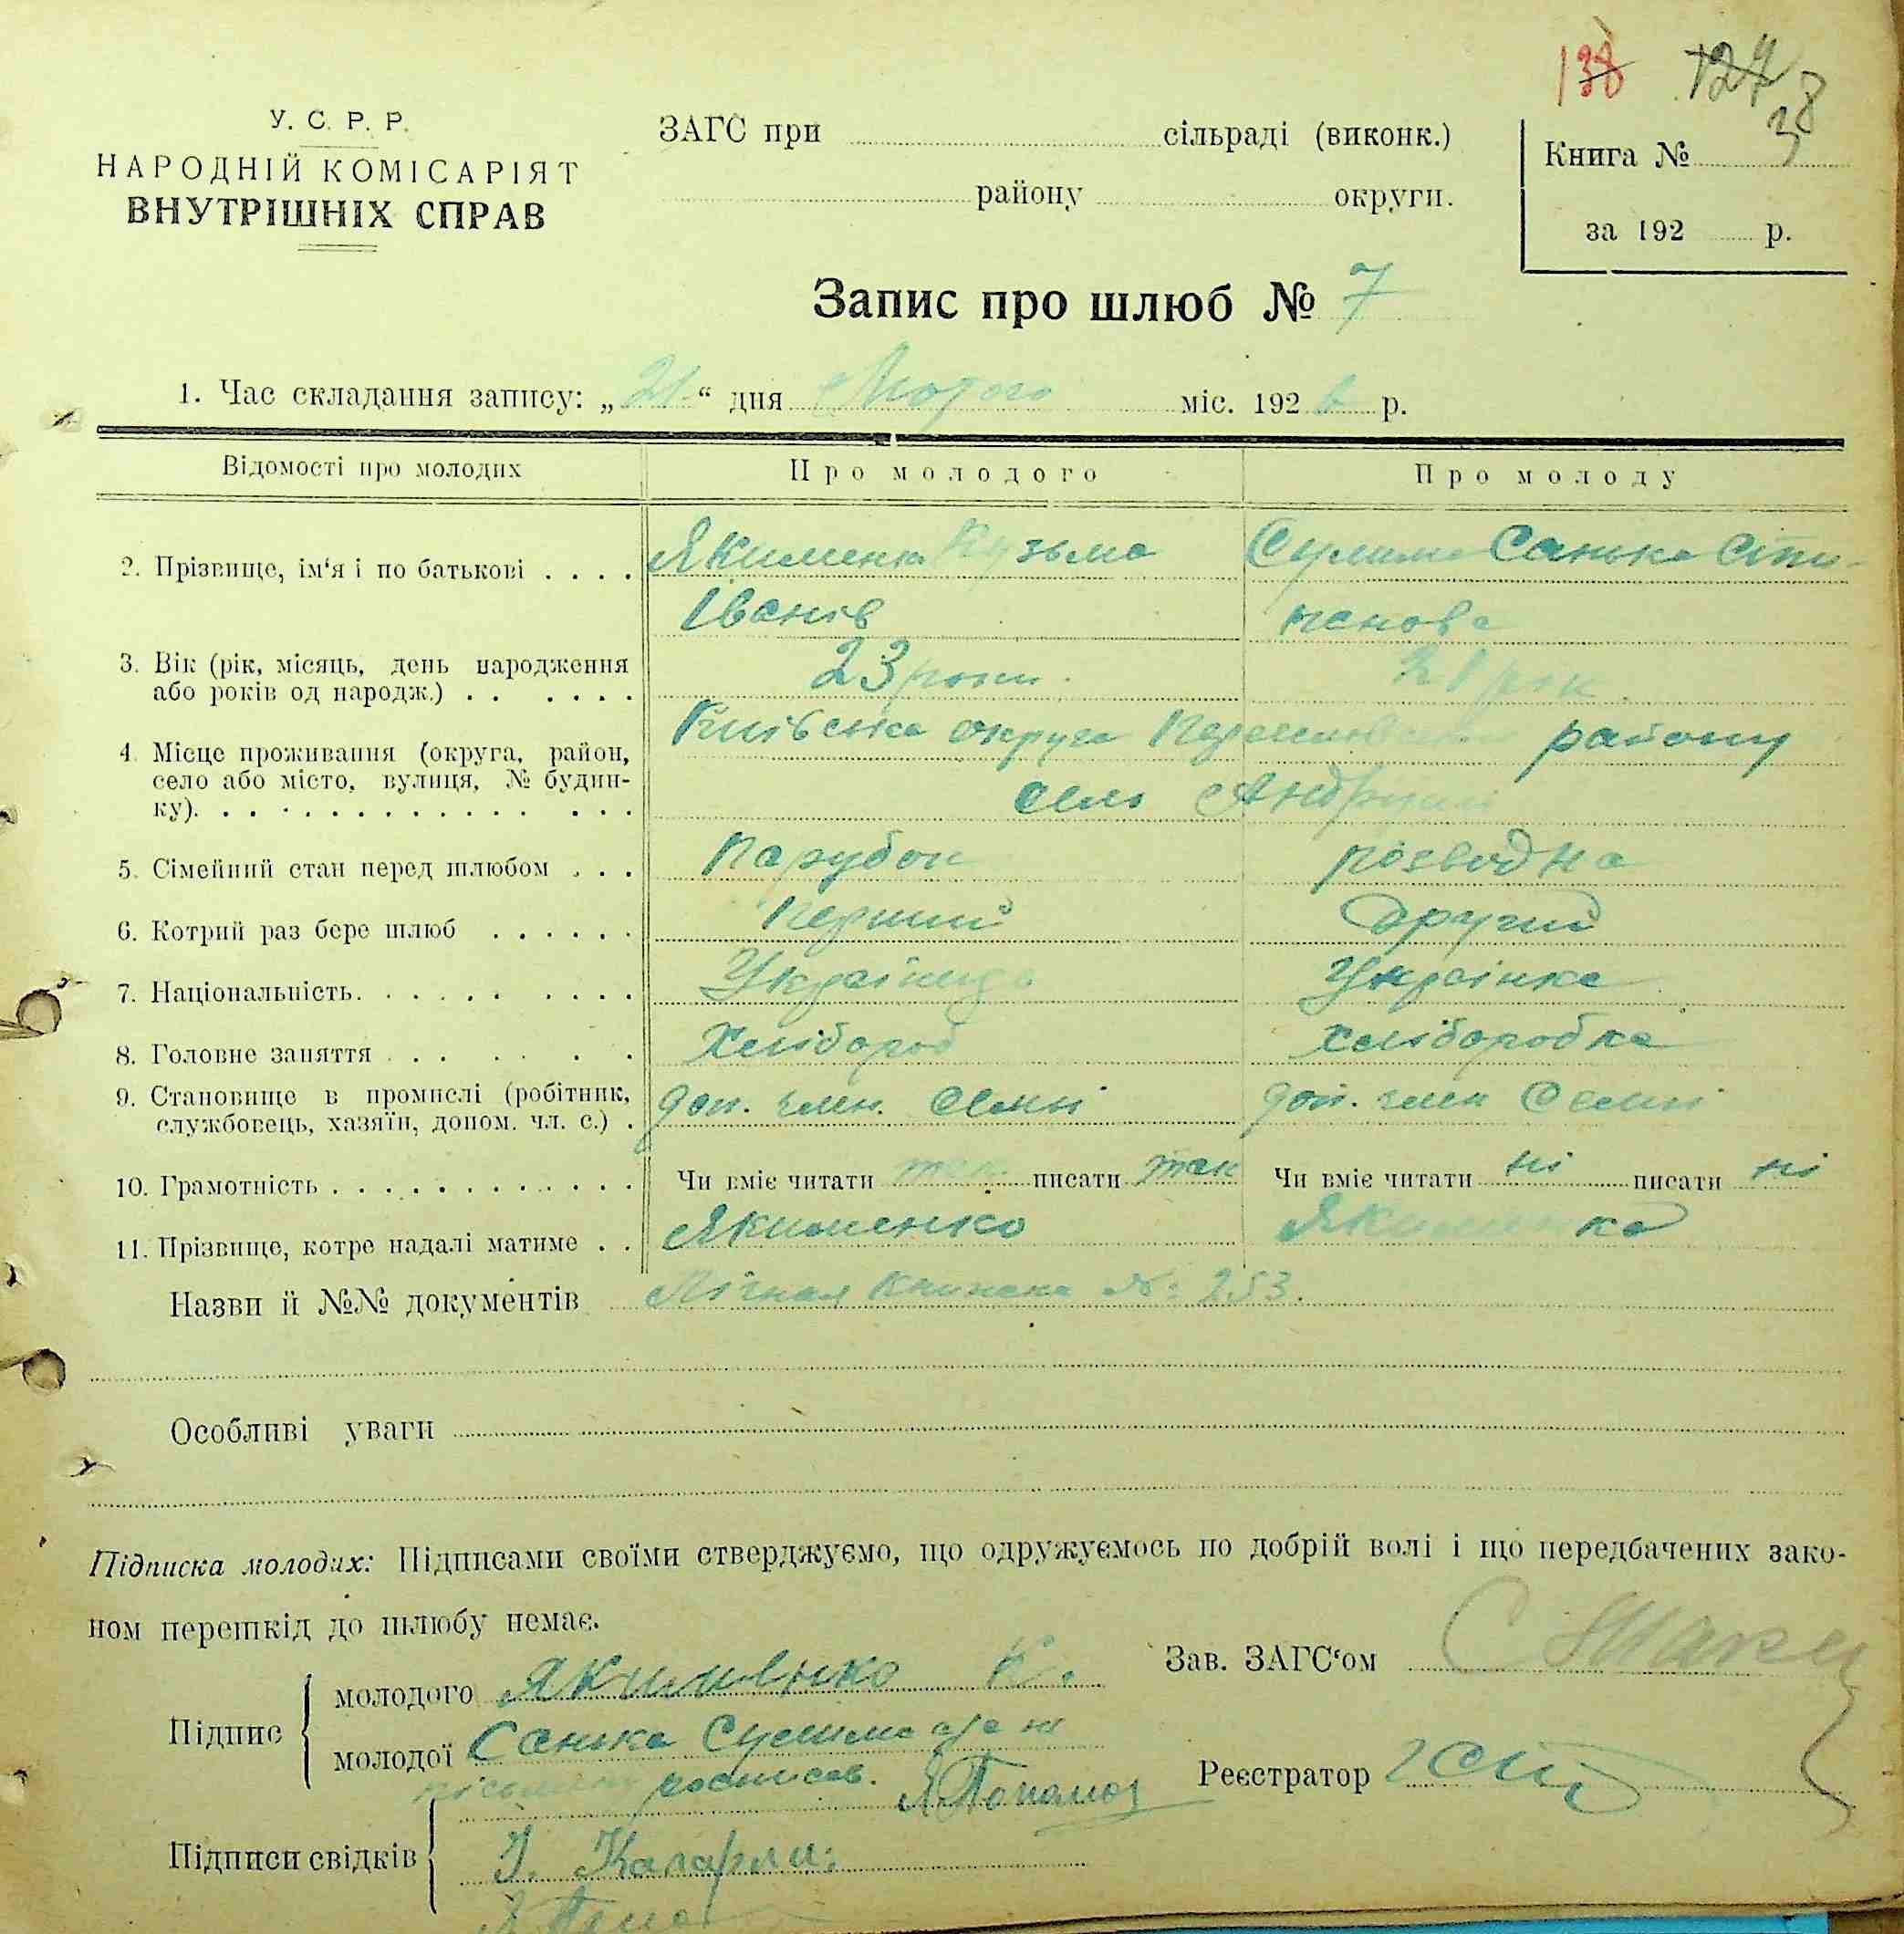 138 127
38
У. С. Р. Р.
НАРОДНІЙ КОМІСАРІЯТ
ВНУТРІШНІХ СПРАВ
ЗАГС при сільраді (виконк.)
району округи.
Книга №
за 192 р.
Запис про шлюб № 7
1. Час складання запису: „21“ дня Лютого міс. 1926 р.
Відомості про молодих Про молодого Про молоду
2. Прізвище, ім‘я і по батькові . . . . Якименко Кузьма Сулима Санька Сти-
Іванів панова
3. Вік (рік, місяць, день народження
або років од народж.) . . . . . . 23 роки. 21 рік.
4. Місце проживання (округа, район, Київська округа району
село або місто, вулиця, № будин-
ку). . . . . . . . . . . . . . . село Андруші
5. Сімейний стан перед шлюбом . . . Парубок розводна
6. Котрий раз бере шлюб . . . . . . Перший Другий
7. Національність. . . . . . . . . . Українець Українка
8. Головне заняття . . . . . . Хлібороб Хліборобка
9. Становище в промислі (робітник,
службовець, хазяїн, допом. чл. с.) . доп. член. семні доп. член семні
10. Грамотність . . . . . . . . . . . . . Чи вміє читати так писати так Чи вміє читати ні писати ні
11. Прізвище, котре надалі матиме . . Якименко Якименко
Назви й №№ документів Книжка №: 253.
Особливі уваги
Підписка молодих: Підписами своїми стверджуємо, що одружуємось по добрій волі і що передбачених зако-
ном перешкід до шлюбу немає.
Зав. ЗАГС‘ом
Підпис молодого Якименко К.
молодої Санька Сулима а за не
росписав.
Реєстратор
Підписи свідків